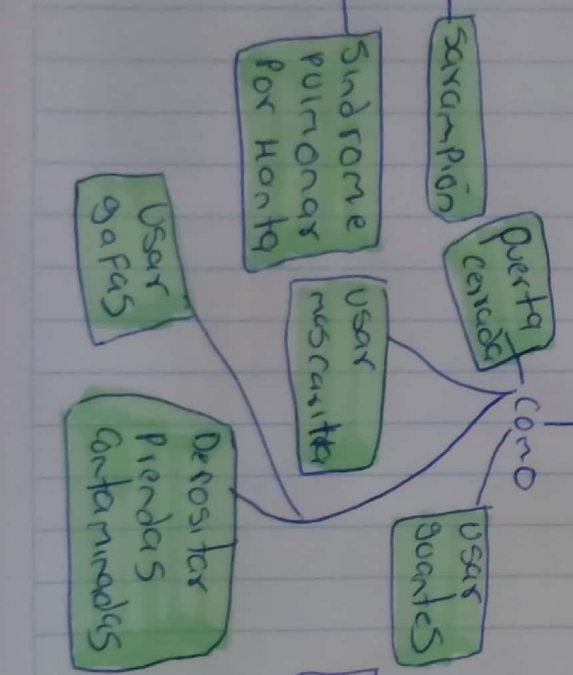 Sarampión
Sindrome
pulmonar
Por Hanta
puerta
cerrada
como
usar
mascarilla
usar
guantes
Usar
gafas
Depositar
prendas
contaminadas